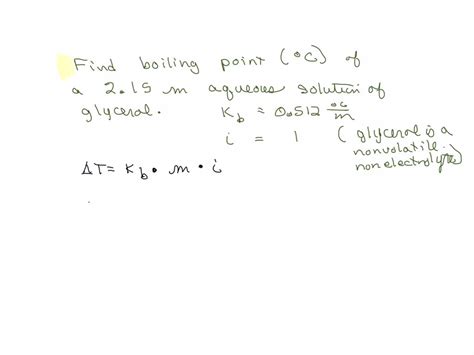 Find boiling point (°C) of
a 2.15 m aqueous solution of
glycerol. K_b = 0.512 °C/m
i = 1 (glycerol is a
nonvolatile
nonelectrolyte)
ΔT = K_b • m • i